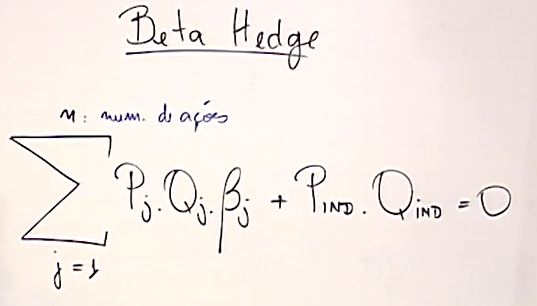 Beta Hedge
n: num. de ações
∑ Pj.Qj.βj + PIND.QIND = 0
j = 1